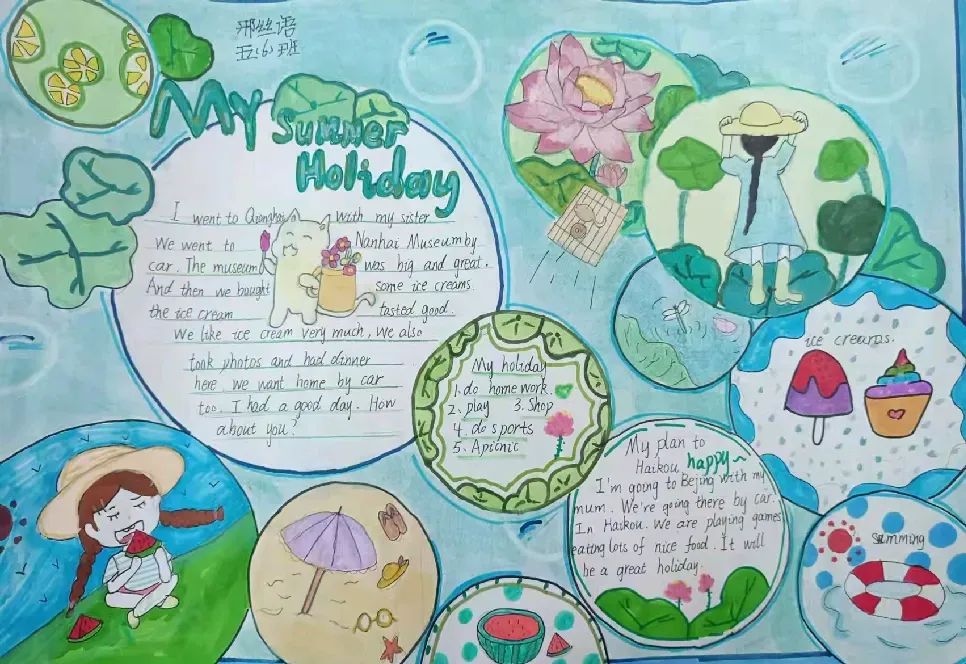 邢丝语
五(6)班
My Summer
Holiday
I went to Qionghai with my sister
We went to Nanhai Museum by
car. The museum was big and great.
And then we bought some ice creams
the ice cream tasted good.
We like ice cream very much, We also
took photos and had dinner
here. We want home by car
too. I had a good day. How
about you?
My holiday
1. do homework.
2. play 3. Shop
4. do sports
5. A picnic
ice creams.
My plan to
Haikou happy~
I'm going to Bejing with my
mum. We're going there by car.
In Haikou. We are playing games
eating lots of nice food. It will
be a great holiday.